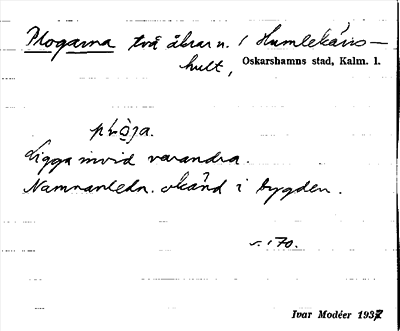 Plogarna två åkrar n. / Humlekärrs-
hult, Oskarshamns stad, Kalm. l.
plòja.
Ligga invid varandra.
Namnanledn. okänd i bygden.
s. 170.
Ivar Modéer 1937